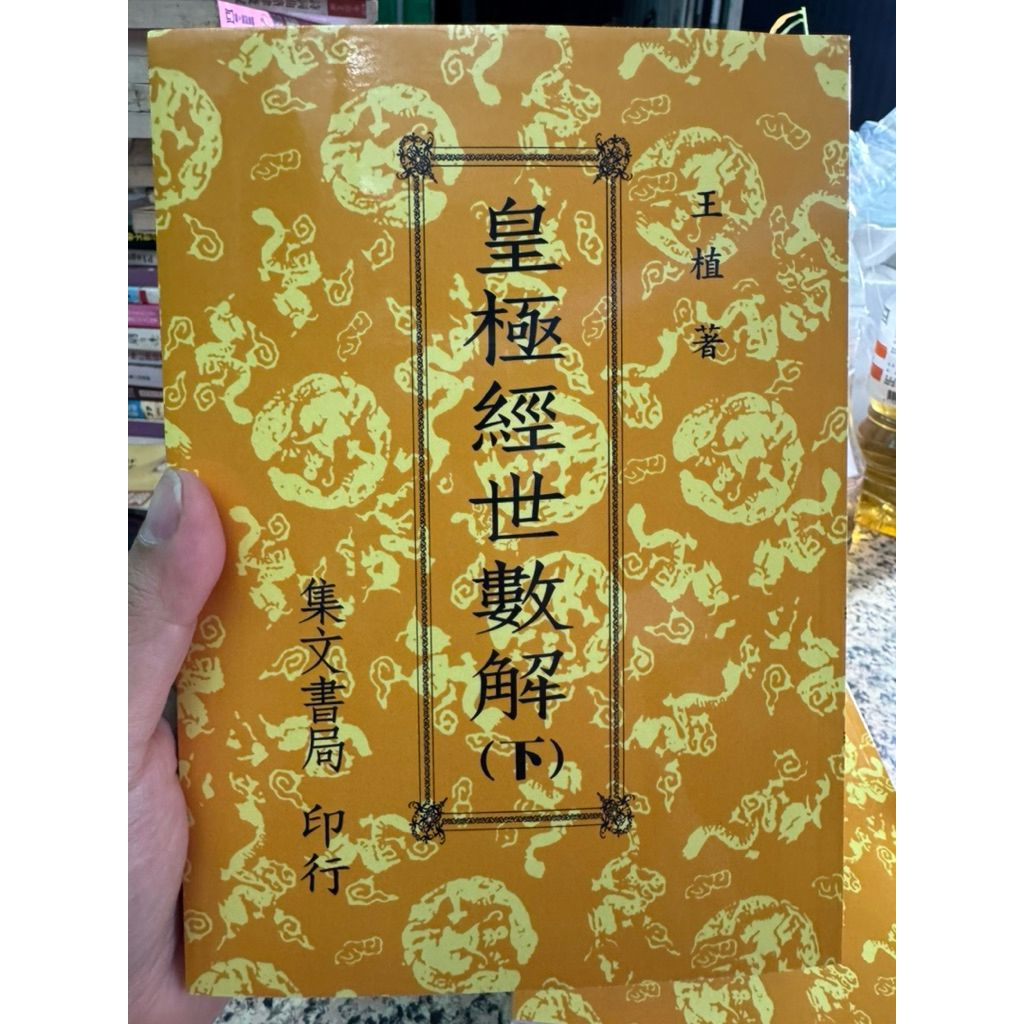 王植 著
皇極經世數解(下)
集文書局 印行